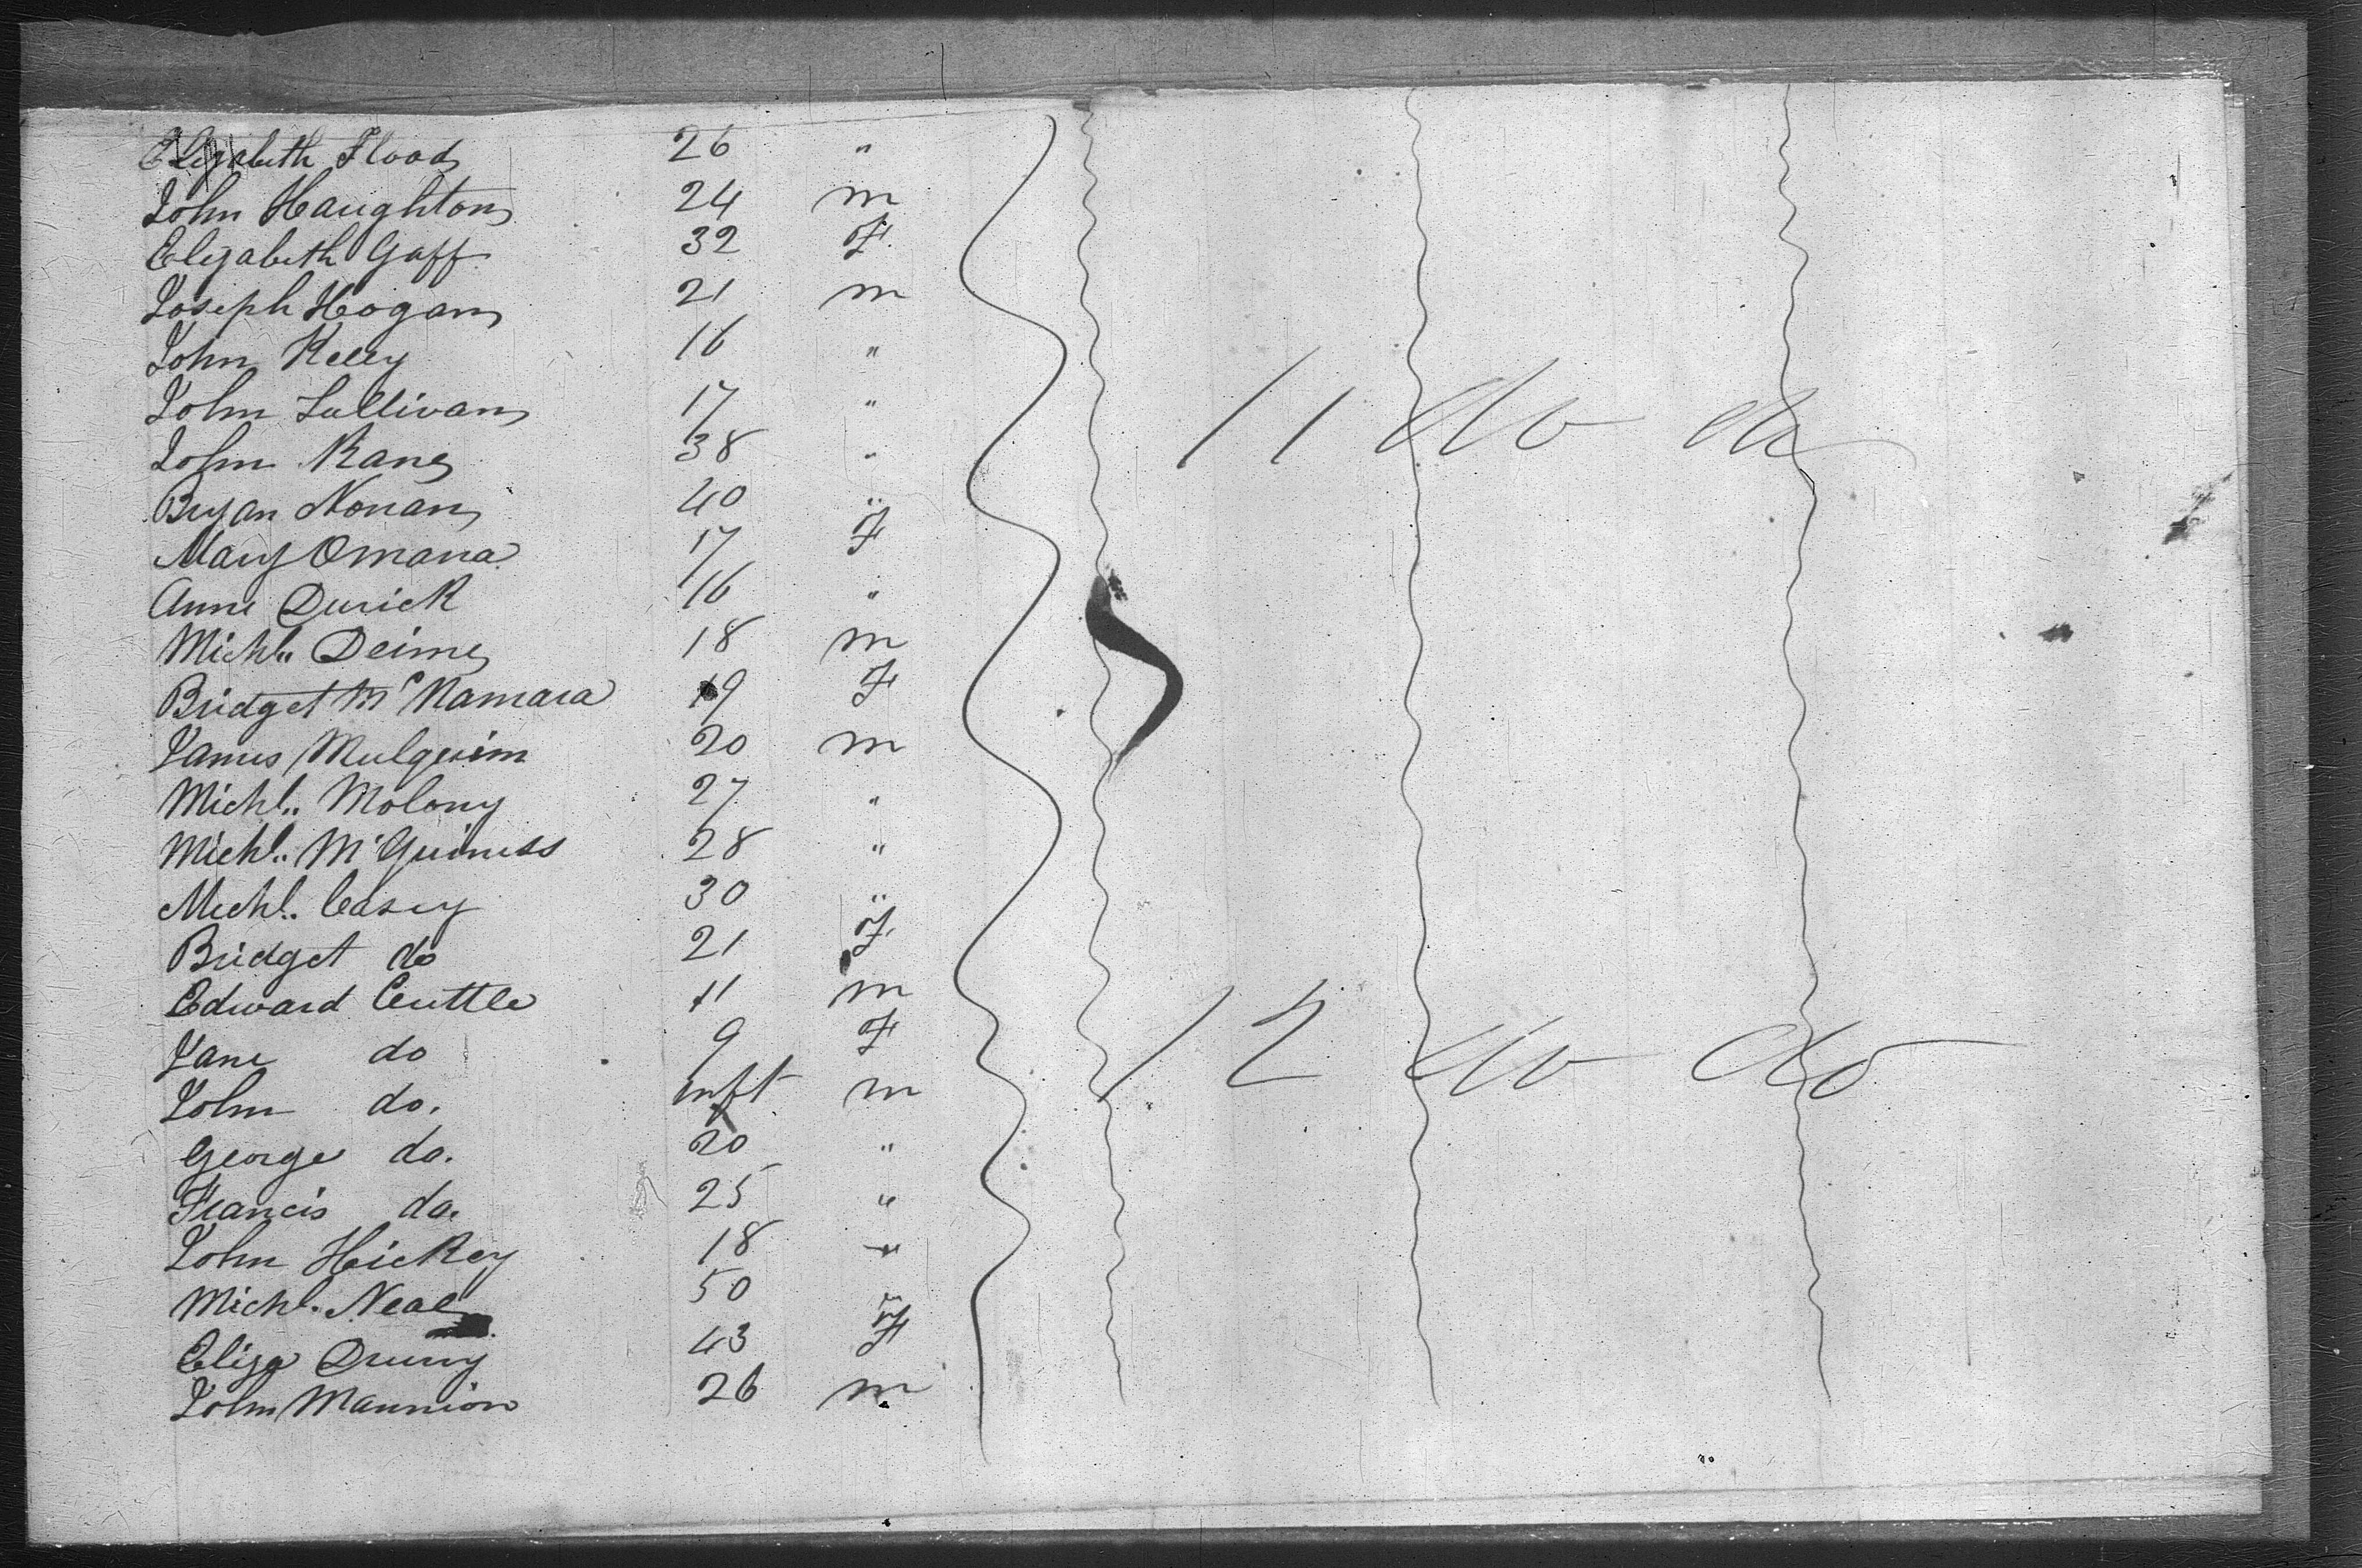 Elizabeth Flood 26 "
John Haughton 24 m
Elizabeth Gaff 32 F.
Joseph Hogan 21 m
John Kelly 16 "
John Sullivan 17 "
John Kane 38 " 11 do do
Bryan Nonan 40 "
Mary Omara 17 F
Anne Durick 16 "
Michl.. Deime 18 m
Bridget McNamara 19 F
James Mulquim 20 m
Michl.. Molony 27 "
Michl.. McGuiness 28 "
Michl.. Casey 30 "
Bridget do 21 F.
Edward Cuttle 11 m
Jane do 9 F 12 do do
John do. inft m
George do. 20 "
Francis do. 25 "
John Hickey 18 "
Michl. Neal 50 "
Eliza Drury 43 F
John Mannion 26 m